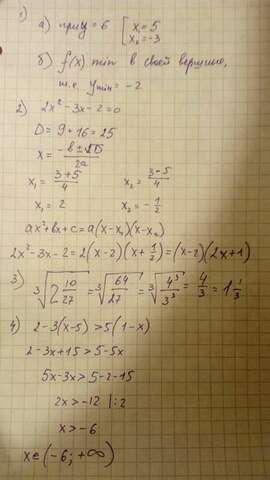 1)
а) при y = 6 [ x₁ = 5
x₂ = -3
б) f(x) min в своей вершине,
т.е. ymin = -2
2) 2x² - 3x - 2 = 0
D = 9 + 16 = 25
x = (-b ± √D)/2a
x₁ = (3+5)/4 x₂ = (3-5)/4
x₁ = 2 x₂ = -1/2
ax² + bx + c = a(x - x₁)(x - x₂)
2x² - 3x - 2 = 2(x - 2)(x + 1/2) = (x - 2)(2x + 1)
3) ³√(2 10/27) = ³√(64/27) = ³√(4³/3³) = 4/3 = 1 1/3
4) 2 - 3(x - 5) > 5(1 - x)
2 - 3x + 15 > 5 - 5x
5x - 3x > 5 - 2 - 15
2x > -12 |:2
x > -6
x ∈ (-6; +∞)